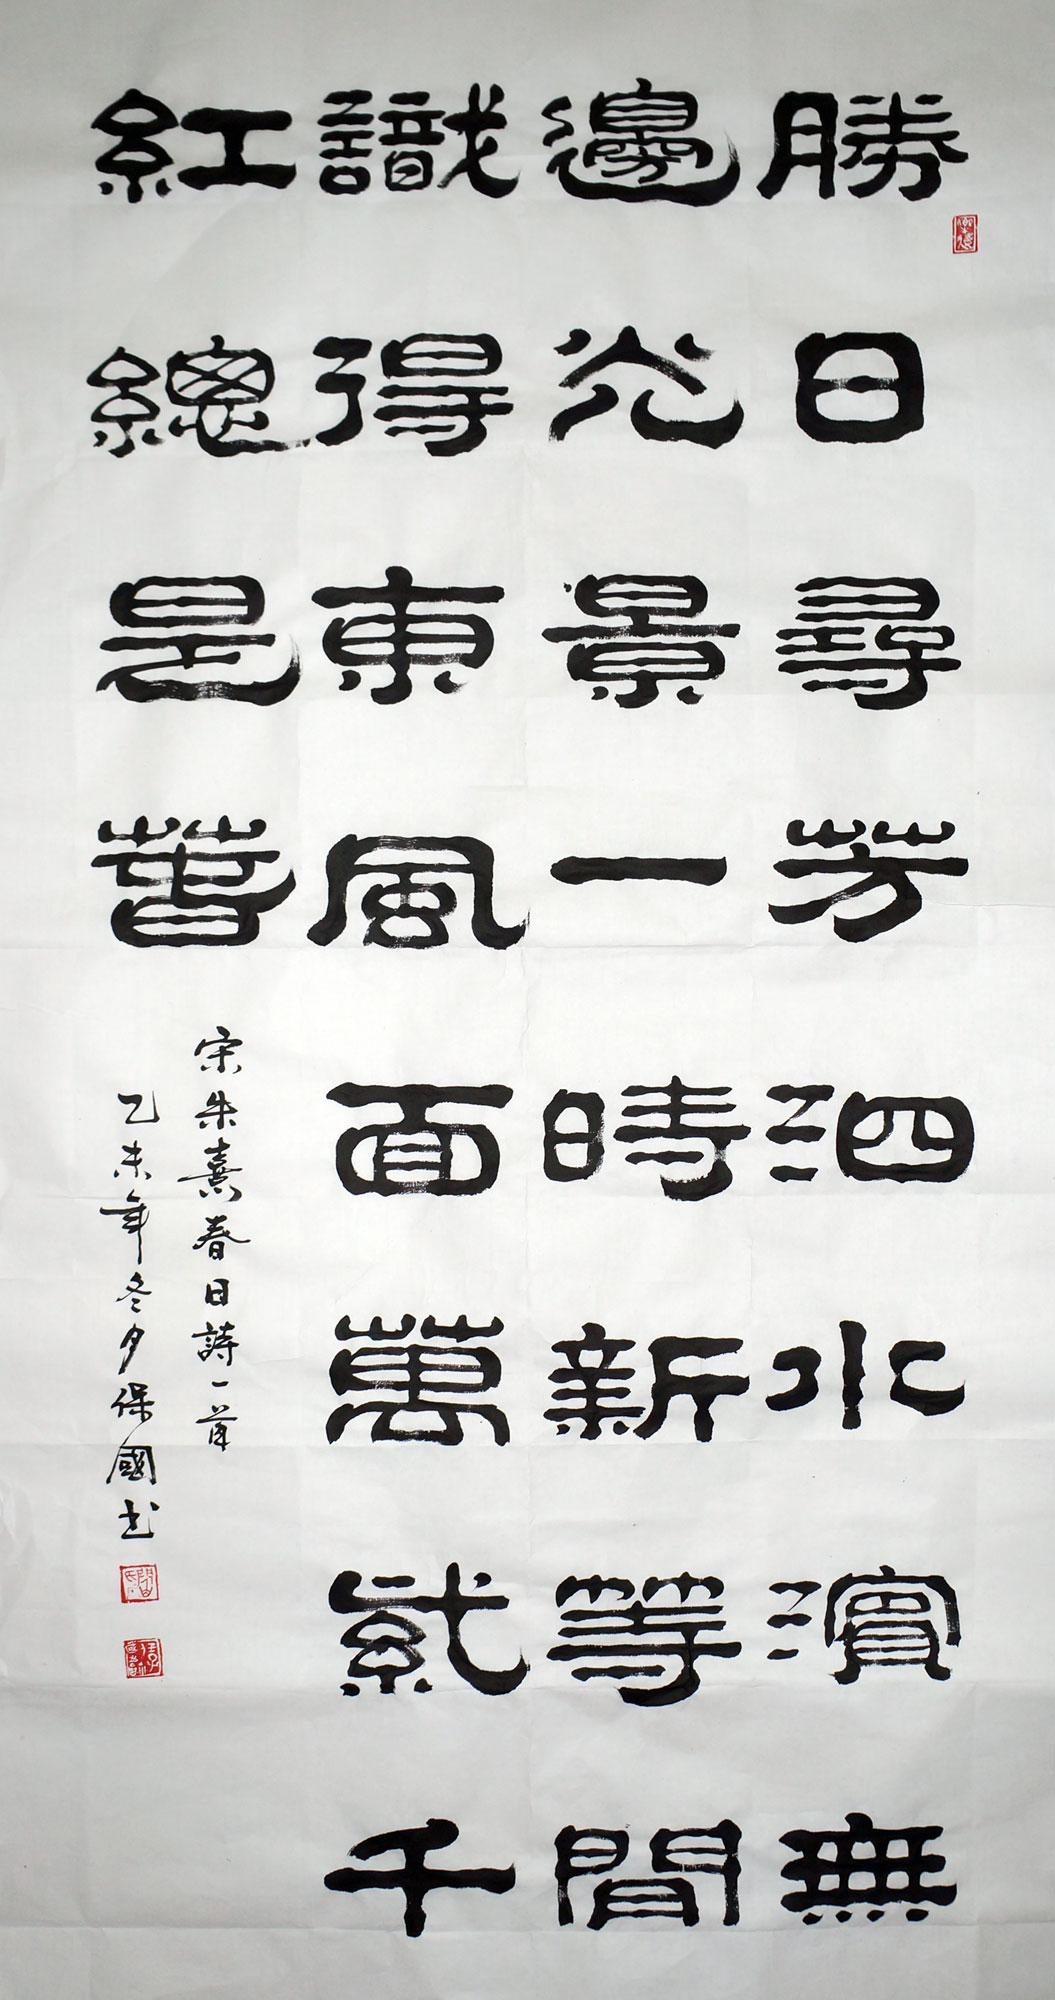 勝日尋芳泗水濱無
邊光景一時新等間
識得東風面萬紫千
紅總是春
宋朱熹春日詩一首
乙未年冬月保國书